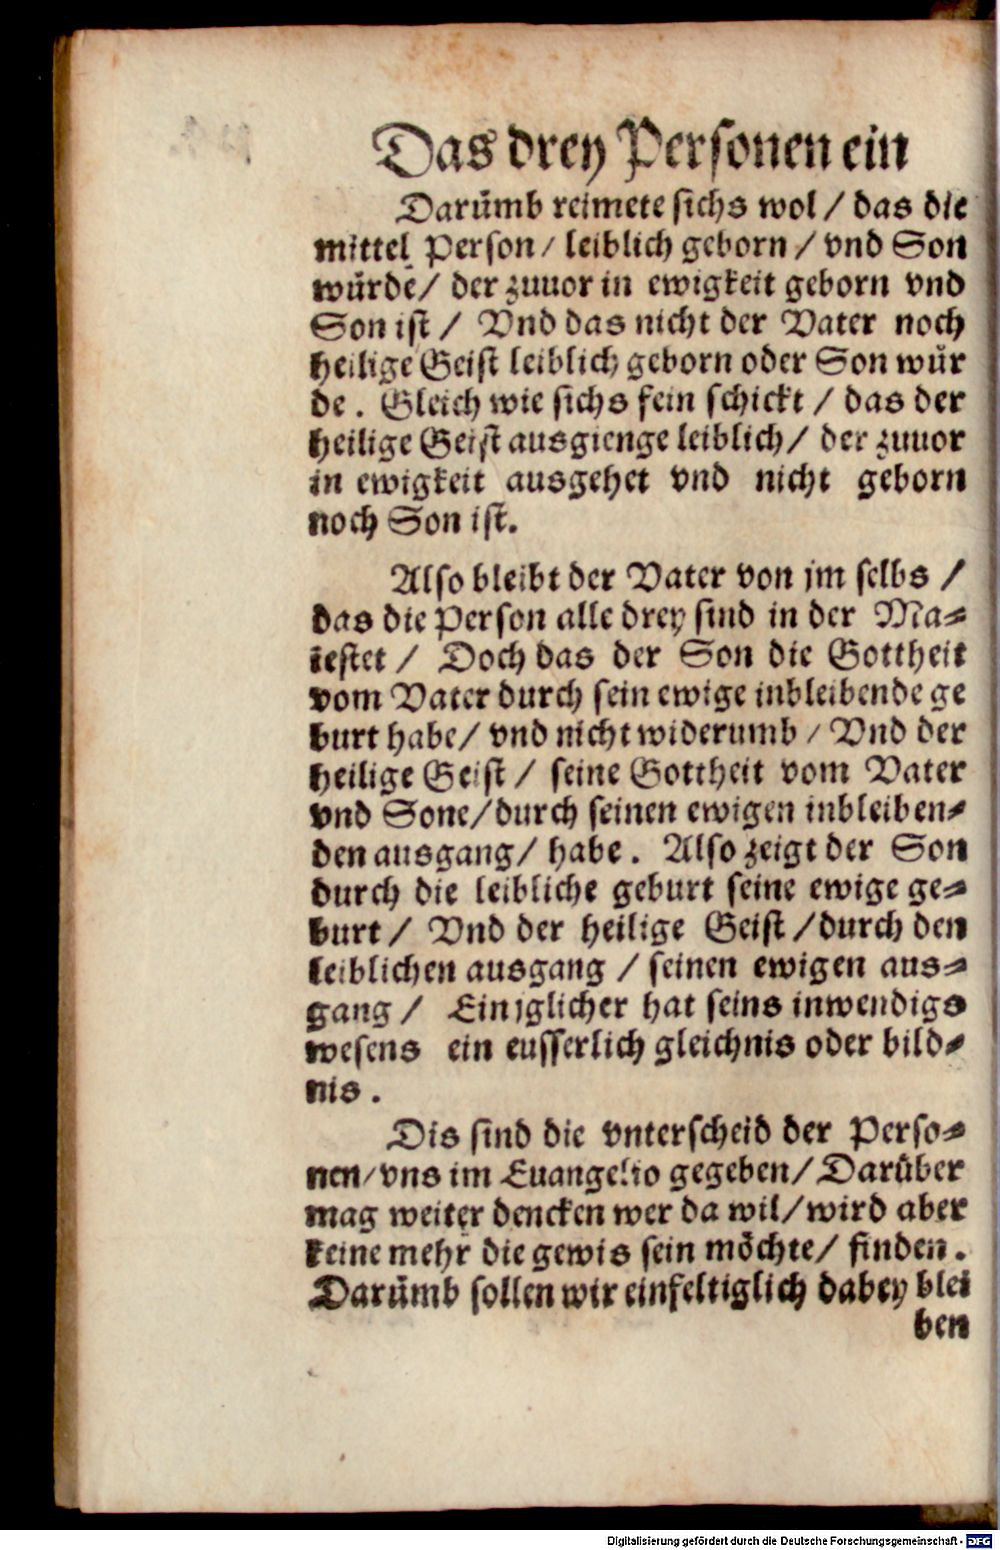 Das drey Personen ein
Darümb reimete sichs wol / das die
mittel Person / leiblich geborn / vnd Son
würde / der zuuor in ewigkeit geborn vnd
Son ist / Vnd das nicht der Vater noch
heilige Geist leiblich geborn oder Son wür
de . Gleich wie sichs fein schickt / das der
heilige Geist ausgienge leiblich / der zuuor
in ewigkeit ausgehet vnd nicht geborn
noch Son ist.
Also bleibt der Vater von jm selbs /
das die Person alle drey sind in der Ma⸗
iestet / Doch das der Son die Gottheit
vom Vater durch sein ewige inbleibende ge
burt habe / vnd nicht widerumb / Vnd der
heilige Geist / seine Gottheit vom Vater
vnd Sone / durch seinen ewigen inbleiben⸗
den ausgang / habe . Also zeigt der Son
durch die leibliche geburt seine ewige ge⸗
burt / Vnd der heilige Geist / durch den
leiblichen ausgang / seinen ewigen aus⸗
gang / Ein jglicher hat seins inwendigs
wesens ein eusserlich gleichnis oder bild⸗
nis .
Dis sind die vnterscheid der Perso⸗
nen / vns im Euangelio gegeben / Darüber
mag weiter dencken wer da wil / wird aber
keine mehr die gewis sein möchte / finden .
Darümb sollen wir einfeltiglich dabey blei
ben
Digitalisierung gefördert durch die Deutsche Forschungsgemeinschaft - DFG